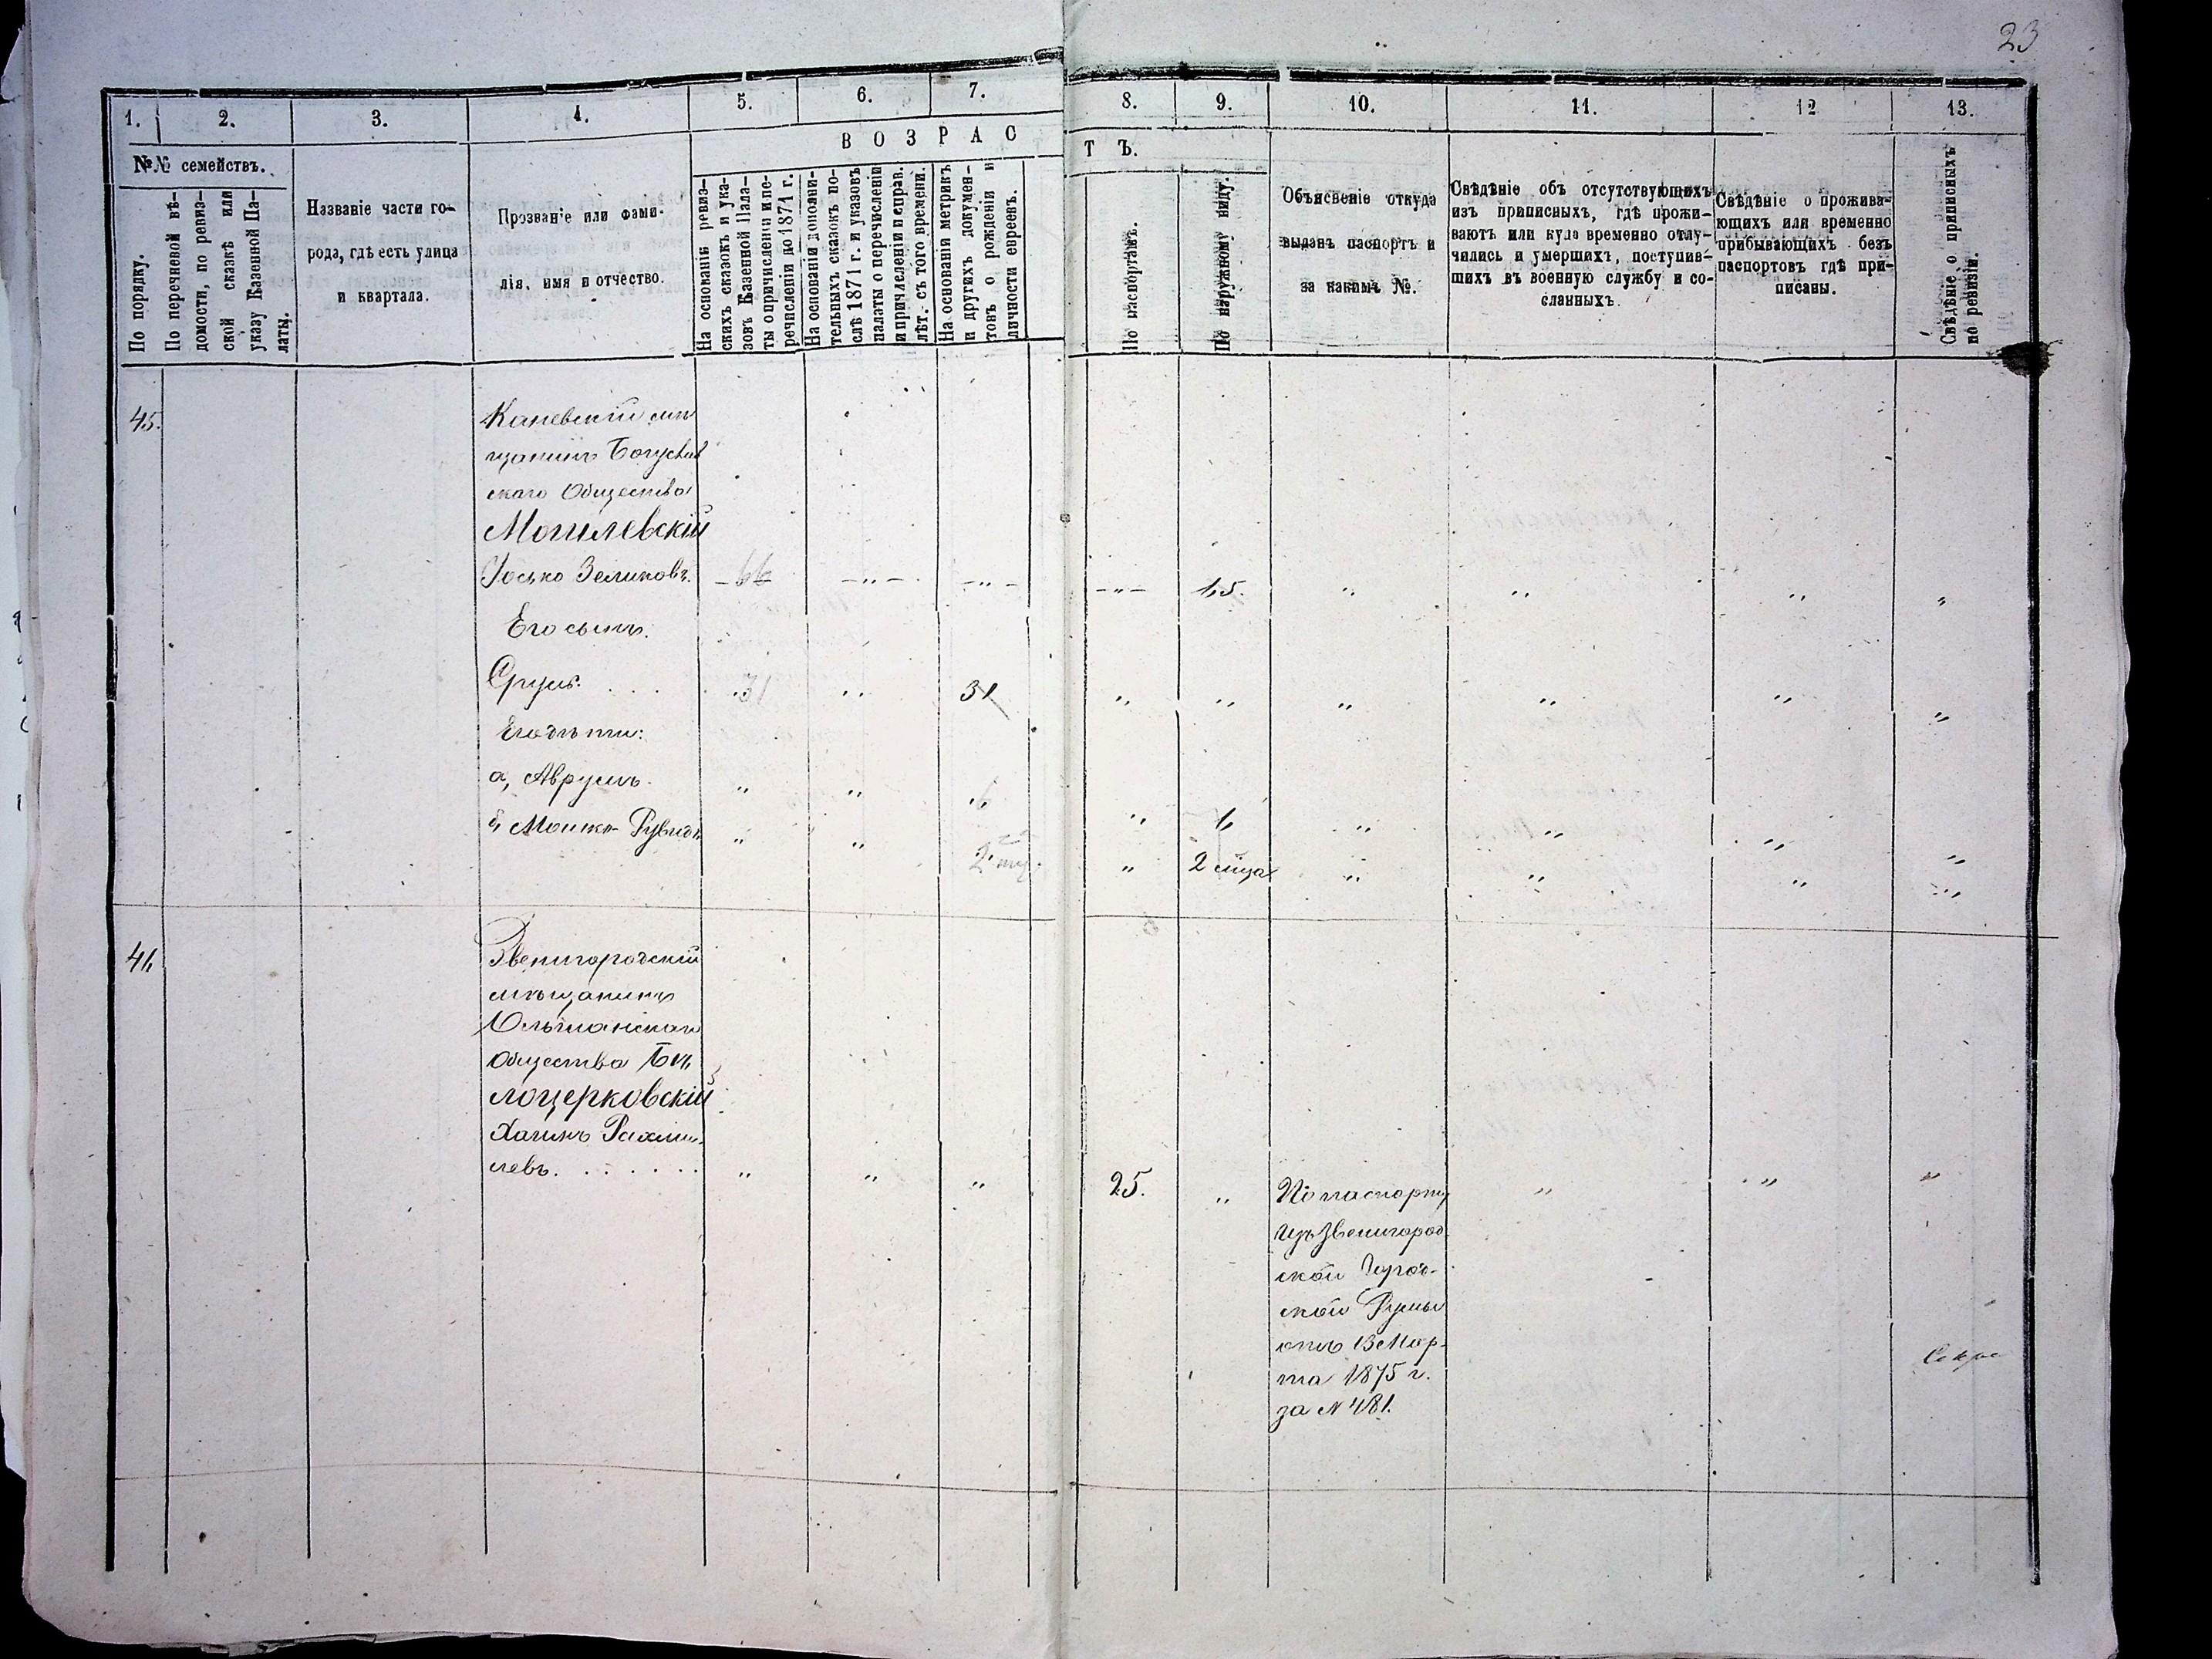 23
1. 2. 3. 4. 5. 6. 7. 8. 9. 10. 11. 12 13.
ВОЗРАСТЪ.
№№ семействъ.
По порядку.
По перечневой вѣ-
домости, по ревиз-
ской сказкѣ или
указу Казенной Па-
латы.
Названіе части го-
рода, гдѣ есть улица
и квартала.
Прозваніе или фами-
лія, имя и отчество.
На основаніи ревиз-
скихъ сказокъ и ука-
зовъ Казенной Пала-
ты о причисленіи и пе-
речисленіи до 1871 г.
На основаніи дополни-
тельныхъ сказокъ по-
слѣ 1871 г. и указовъ
палаты о перечисленіи
и причисленіи и справ.
лѣт. съ того времени.
На основаніи метрикъ
и другихъ докумен-
товъ о рожденіи и
личности евреевъ.
По паспортамъ.
По наружному виду.
Объясненіе откуда
выданъ паспортъ и
за какимъ №.
Свѣдѣніе объ отсутствующихъ
изъ приписныхъ, гдѣ прожи-
ваютъ или куда временно отлу-
чились и умершихъ, поступив-
шихъ въ военную службу и со-
сланныхъ.
Свѣдѣніе о прожива-
ющихъ или временно
прибывающихъ безъ
паспортовъ гдѣ при-
писаны.
Свѣдѣніе о приписныхъ
по ревизіи.
45.
Каневскій мѣ
щанинъ Богуслав
скаго Общества
Могилевскій
Іосько Зеликовъ. - 66 - - „ - - „ - - „ - „ „ „ „
Его сынъ.
Сруль. 31 „ 31 „ „ „ „ „ „
Его дѣти:
а, Аврумъ. „ „ „ „ „ „ „ „
б, Мошко- „ „ „ 2 мѣца „ „ „ „
46
Звенигородскій
мѣщанинъ
Ольшанскаго
Общества Бѣ„
лоцерковскій
Хаимъ Рахми-
левъ. „ „ „ 25. „ По паспорту „ „ „
изъ Звенигород
ской Город-
ской
отъ 13 Мар-
та 1875 г.
за N 481.